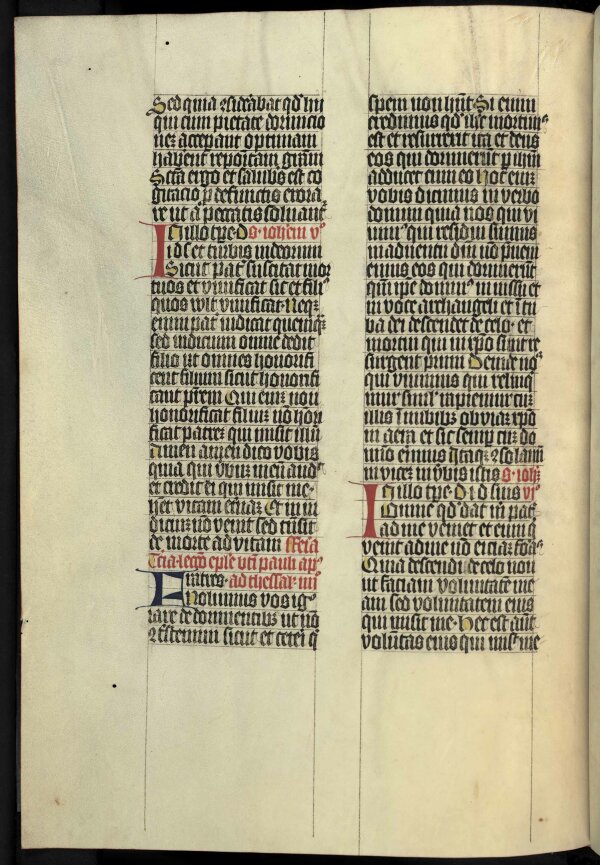 Sed quia ɔsiderabat qd̄ hii
qui cum pietate dormicio
nē acceperant optimam
haberent repositam grām
Sc̄a ergo et salubris est co
gitacio ꝓ defunctis exora
re ut a pecc̄atis soluant᷑
In illo tp̄e· D· S· iohem v°
ih̄c et turbis iudeorum
Sicut pat᷑ suscitat mor
tuos et viuificat sic et fili᷒
quos wlt viuificat· Neqꝫ
enim pat᷑ iudicat quemqͣꝫ
sed iudicium omne dedit
filio ut omnes honorifi
cent filium sicut honorifi
cant p̄rem Qui eim̄ non
honorificat filiū nō hon
ficat patreꝫ qui misit illū
Amen amen dico vobis
quia qui v̄bū meū aud᷑
et credit ei qui misit me·
h̄et vitam et̄nā· Et in iu
diciū nō venit sed t̄nsit
de morte ad vitam Feria
t̄cia lēgō ep̄le bt̄i pauli ap᷑
Fratres· ad thessal· iiii
Nolumus vos ig᷑
rare de dormientibꝫ ut nō
ɔtristemini sicut et ceteri q̄
spem non hn̄t· Si enim
credimus qd̄ ih̄c mortuu᷒
est et resurrexit ita et deus
eos qui dormierūt ꝑ ih̄m
adducet cum eo Hoc eim̄
vobis dicimus in verbo
domini quia nos qui vi
uim᷒ qui residui sumus
in aduentū dn̄i nō p̄ueni
emus eos qui dormierūt
qm̄ ip̄e domin᷒ in iussu et
in voce archangeli et ī tu
ba dei descendet de celo· et
mortui qui in xp̄o sunt re
surgent primi Deinde no᷒
qui viuimus qui relinq̄
mur simul rapiemur cū
illis ī nubibꝫ obuiā xp̄o
in aera et sic semꝑ cū do
mīo erimus Itaqꝫ ɔsolamī
in vicē in v̄bis istis S· ioh̄ꝫ
In illo tp̄e· D· ih̄c suis vi°
Omne qd̄ dat m̄ pat᷑
ad me veniet et eum q̄
venit ad me nō eiciā foras
Quia descendi de celo non
ut faciam voluntatē me
am sed voluntatem eius
qui misit me· Hec est aūt
volūtas eius qui misit me